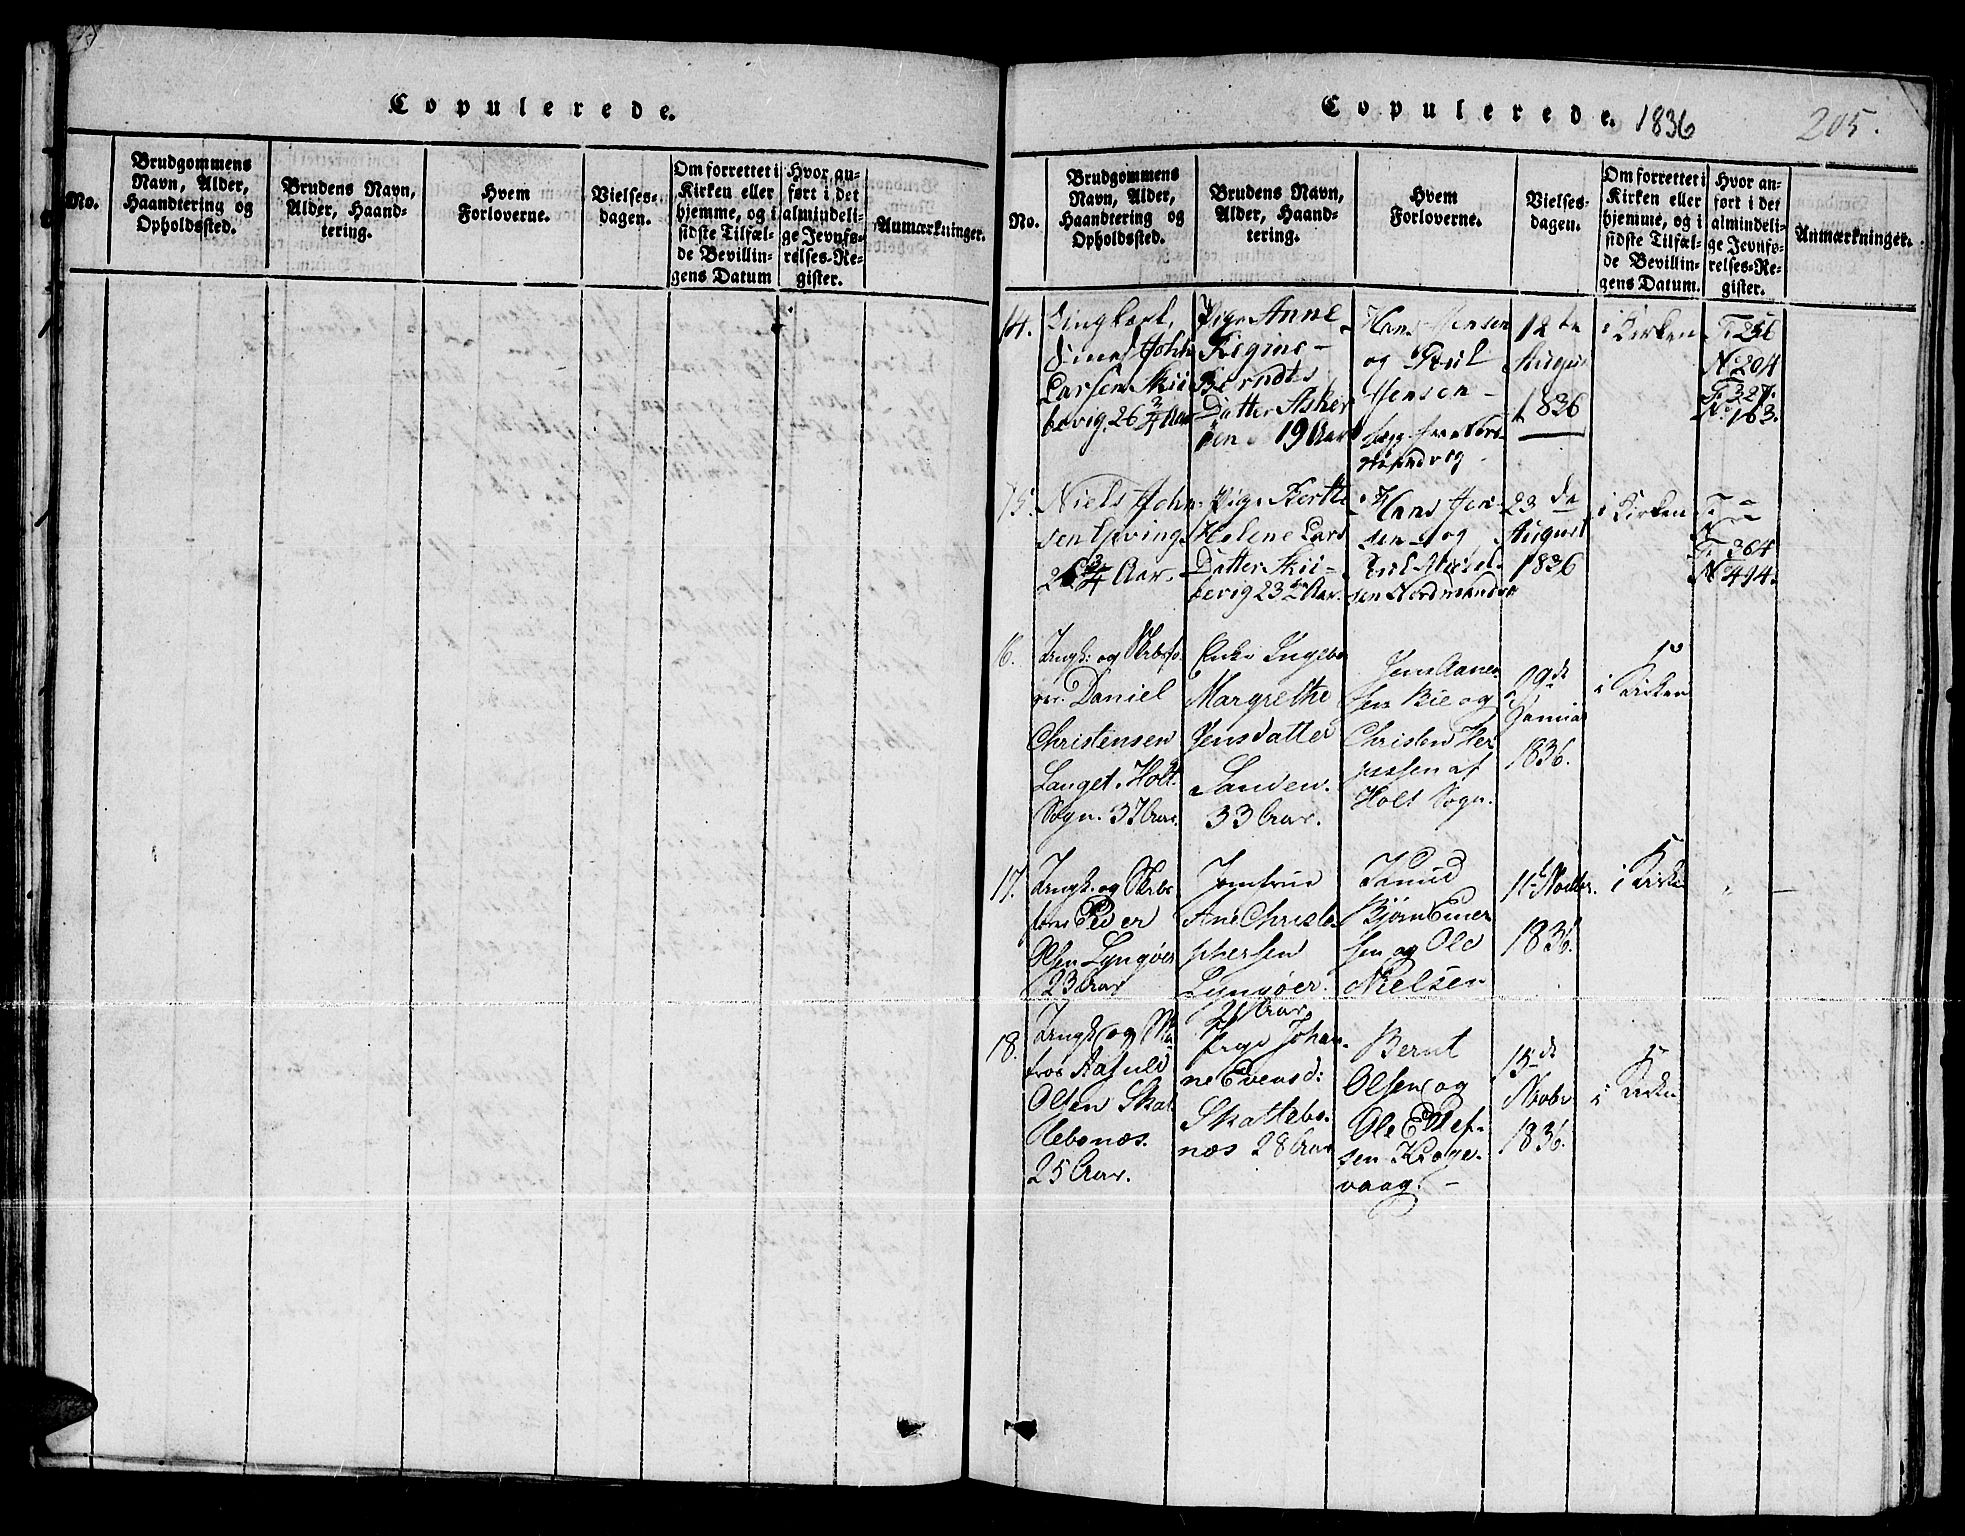 Copulerede.
No.
Brudgommens
Navn, Alder,
Haandtering og
Opholdssted.
Brudens Navn,
Alder, Haand-
tering.
Hvem
Forloverne.
Vielses-
dagen.
Om forrettet i
Kirken eller
hjemme, og i
sidste Tilfæl-
de Bevillin-
gens Datum
Hvor an-
ført i det
almindeli-
ge Jevnfø-
relses-Re-
gister.
Anmærkninger.
Copulerede. 1836
205.
No.
Brudgommens
Navn, Alder,
Haandtering og
Opholdssted.
Brudens Navn,
Alder, Haand-
tering.
Hvem
Forloverne.
Vielses-
dagen.
Om forrettet i
Kirken eller
hjemme, og i
sidste Tilfæl-
de Bevillin-
gens Datum.
Hvor an-
ført i det
almindeli-
ge Jevnfø-
relses-Re-
gister.
Anmærkninger.
14.
John
Larsen Skii
bevig. 26 3/4 Aar
Pige Anne
Regine
Berndts
Datter Asker
öen 19 Aar
Hans Jensen
og Poul
Jensen
12te
August
1836
i Kirken
F. 256
No 204
F. 327.
No 163.
15.
Niels John
sen
26 3/4 Aar.
Pige Berthe
Helene Lars
Datter Skii-
bevig 23 1/2 Aar.
Hans Jen-
sen og
Poul
sen Nordmandv
23de
August
1836
i Kirken
F.
F. 364
No 414.
16.
Ungk: og
Daniel
Christensen
Langet. Holt
Sogn. 37 Aar.
Enke Ingebor
Margrethe
Jensdatter
Sanden.
33 Aar.
Jens Aanen
sen Bie og
Christen Ter
jessen af
Holt Sogn.
29de
Januar
1836.
i Kirken
17.
Ungk. og
Peder
Olsen Lyngöer
23 Aar
Jomfrue
Ane Christo
phersen
Lyngöer.
21 Aar
Knud
Bjørn Einer
sen og Ole
Nielsen
11 Novbr.
1836.
i Kirke
18.
Ungk. og Ma
tros Aasuld
Olsen Skat
tebones.
25 Aar.
Pige Johan-
ne Evensd:
Skattebo-
næs 28 Aar
Bernt
Olsen og
Ole Ellef-
sen Krage-
vaag.
13de
Novbr
1836.
i Kirken